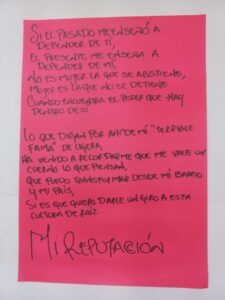 SI EL PASADO ME ENSEÑÓ A
DEPENDER DE TI,
EL PRESENTE ME ENSEÑA A
DEPENDER DE MÍ,
NO ES MUJER LA QUE SE ABSTIENE,
MUJER ES LA QUE NO SE DETIENE
CUANDO ENCUENTRA EL PODER QUE HAY
DENTRO DE SI
LO QUE DIGAN POR AHÍ DE MI "TERRIBLE
FAMA" DE LIGERA,
HA VENIDO A RECORDARME QUE ME VALE UN
CUENTO LO QUE PIENSAN,
QUE PUEDO TRANSFORMAR DESDE MI BARRIO
Y MI PAIS,
SI ES QUE QUIERO DARLE UN GIRO A ESTA
CULTURA DE RAIZ.
MI REPUTACIÓN